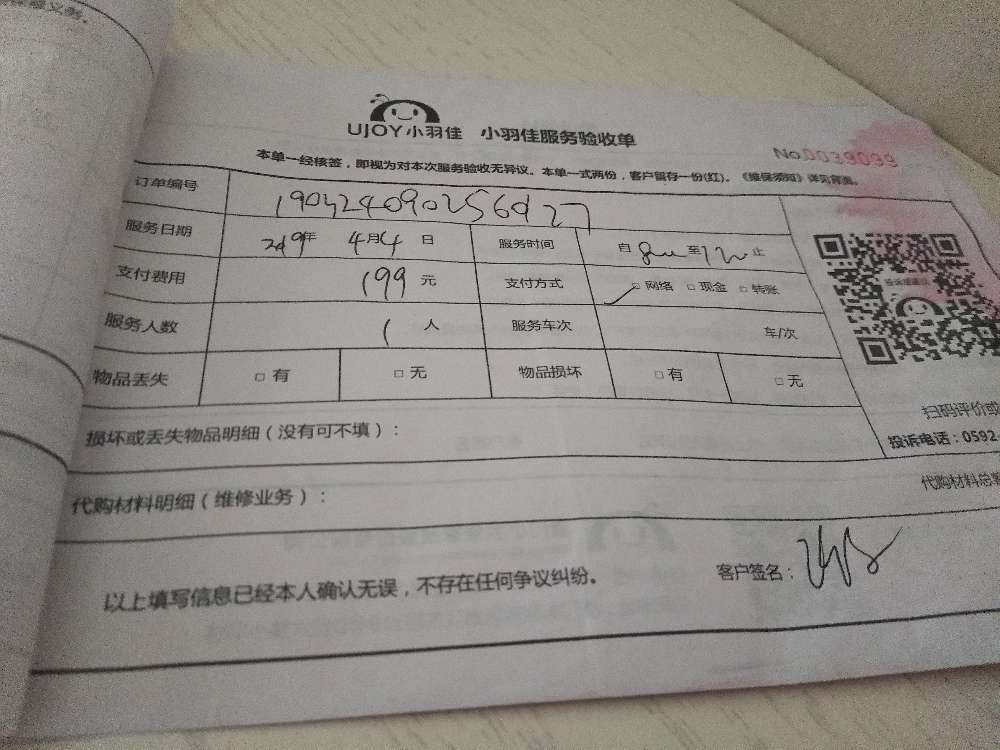 服义务。
UJOY小羽佳 小羽佳服务验收单
No.0039099
本单一经核签，即视为对本次服务验收无异议。本单一式两份，客户留存一份(红)。《维保须知》详见背面。
订单编号
服务日期 2019年 4月4日 服务时间 自 至 止
支付费用 199元 支付方式 □网络 □现金 □转账
服务人数 1人 服务车次 车/次
物品丢失 □有 □无 物品损坏 □有 □无
扫码评价或
损坏或丢失物品明细（没有可不填）：
投诉电话：0592-
代购材料明细（维修业务）：
代购材料总
以上填写信息已经本人确认无误，不存在任何争议纠纷。
客户签名：